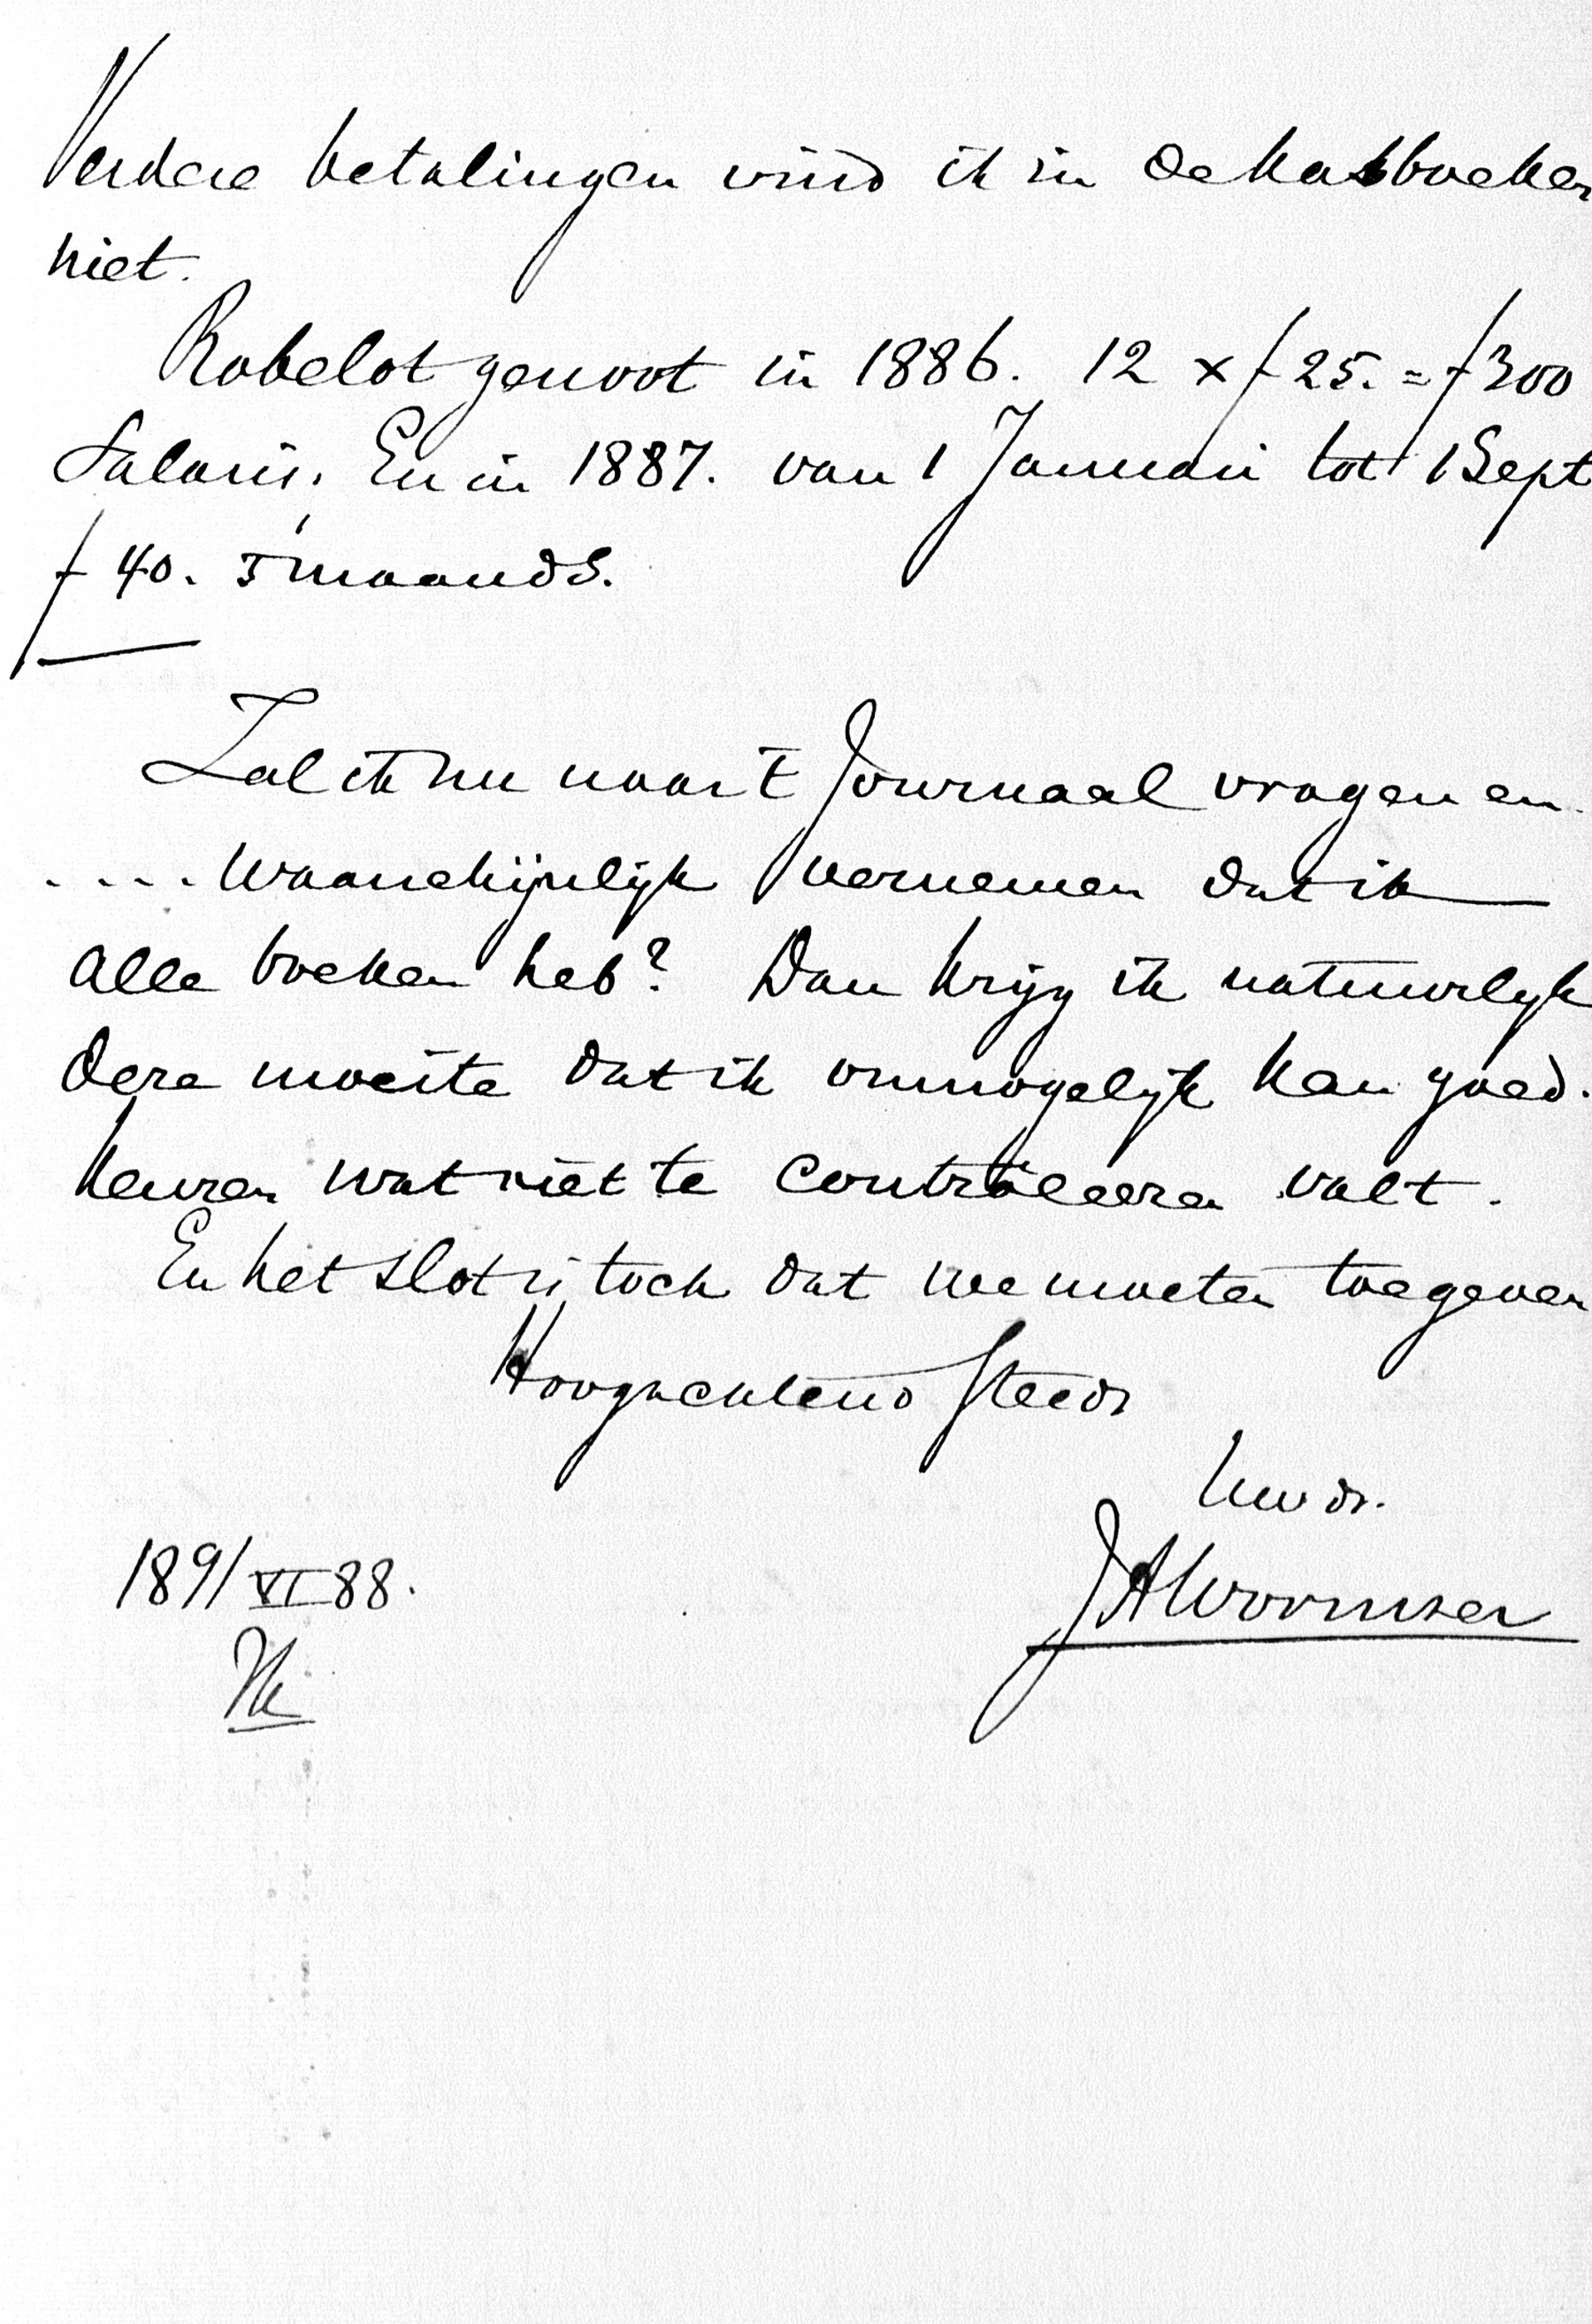 Verdere betalingen vind ik in de kasboeken
niet.
Robelot genoot in 1886. 12 x f 25. = f 300
Salaris. En in 1887. van 1 Januari tot 1 Sept
f 40. 's maands.
Zal ik nu naar 't Journaal vragen en
.... waarschijnlijk vernemen dat ik
alle boeken heb? Dan krijg ik natuurlijk
deze moeite dat ik onmogelijk kan goed-
keuren wat niet te controleeren valt.
En het slot is toch dat we moeten toegeven
Hoogachtend steeds
Uw dr.
JAWormser
189/VI 88.